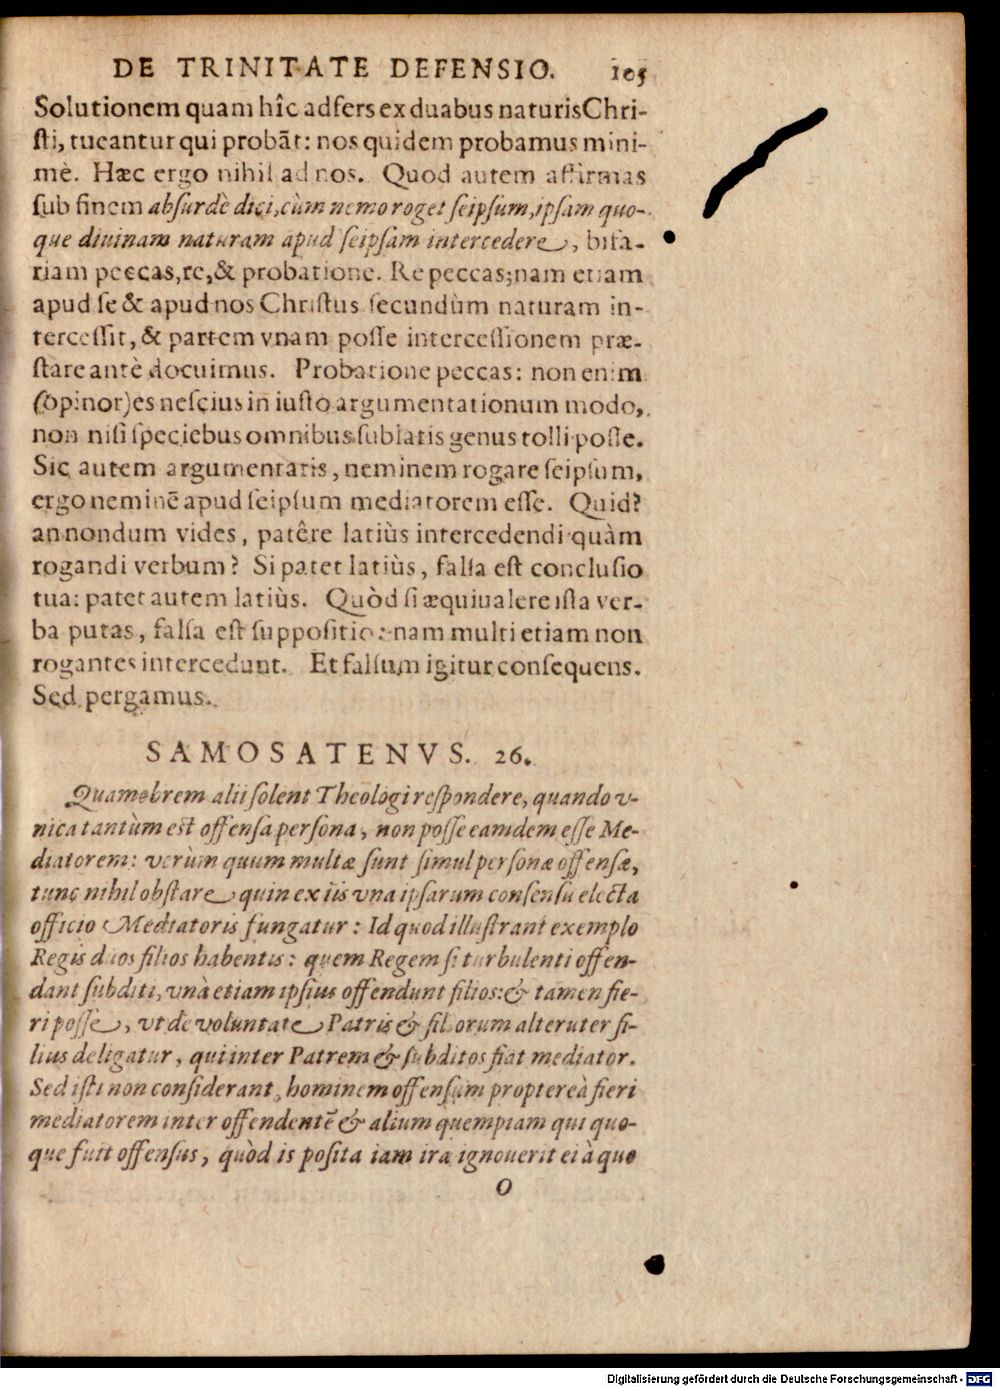 DE TRINITATE DEFENSIO. 105
Solutionem quam hîc adfers ex duabus naturis Chri-
sti, tueantur qui probāt: nos quidem probamus mini-
mè. Hæc ergo nihil ad nos. Quod autem affirmas
sub finem absurdè dici, cùm nemo roget seipsum, ipsam quo-
que diuinam naturam apud seipsam intercedere, bifa-
riam peccas, re, & probatione. Re peccas; nam etiam
apud se & apud nos Christus secundùm naturam in-
tercessit, & partem vnam posse intercessionem præ-
stare antè docuimus. Probatione peccas: non enim
(opinor) es nescius in iusto argumentationum modo,
non nisi speciebus omnibus sublatis genus tolli posse.
Sic autem argumentaris, neminem rogare seipsum,
ergo neminē apud seipsum mediatorem esse. Quid?
an nondum vides, patêre latiùs intercedendi quàm
rogandi verbum? Si patet latiùs, falsa est conclusio
tua: patet autem latiùs. Quòd si æquiualere ista ver-
ba putas, falsa est suppositio: nam multi etiam non
rogantes intercedunt. Et falsum igitur consequens.
Sed pergamus.
SAMOSATENVS. 26.
Quamobrem alii solent Theologi respondere, quando v-
nica tantùm est offensa persona, non posse eamdem esse Me-
diatorem: verùm quum multæ sunt simul personæ offensæ,
tunc nihil obstare quin ex iis vna ipsarum consensu electa
officio Mediatoris fungatur: Id quod illustrant exemplo
Regis duos filios habentis: quem Regem si turbulenti offen-
dant subditi, vnà etiam ipsius offendunt filios: & tamen fie-
ri posse, vt de voluntate Patris & filiorum alteruter fi-
lius deligatur, qui inter Patrem & subditos fiat mediator.
Sed isti non considerant, hominem offensum proptereà fieri
mediatorem inter offendentē & alium quempiam qui quo-
que fuit offensus, quòd is posita iam ira ignouerit ei à quo
O
Digitalisierung gefördert durch die Deutsche Forschungsgemeinschaft - DFG